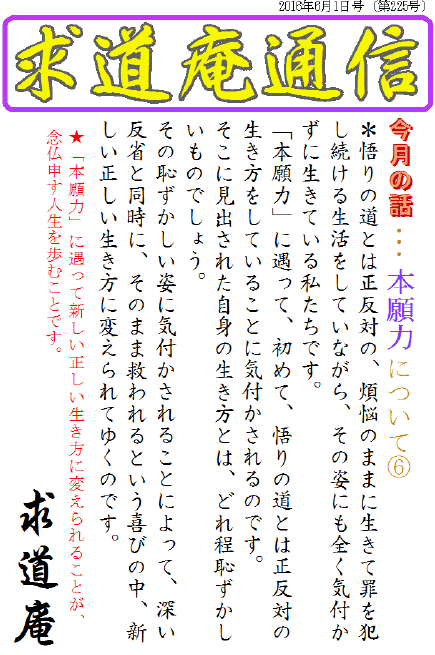 2016年6月1日号（第225号）
求道庵通信
今月の話…本願力について⑥
＊悟りの道とは正反対の、煩悩のままに生きて罪を犯
し続ける生活をしていながら、その姿にも全く気付か
ずに生きている私たちです。
「本願力」に遇って、初めて、悟りの道とは正反対の
生き方をしていることに気付かされるのです。
そこに見出された自身の生き方とは、どれ程恥ずかし
いものでしょう。
その恥ずかしい姿に気付かされることによって、深い
反省と同時に、そのまま救われるという喜びの中、新
しい正しい生き方に変えられてゆくのです。
★「本願力」に遇って新しい正しい生き方に変えられることが、
念仏申す人生を歩むことです。
求道庵